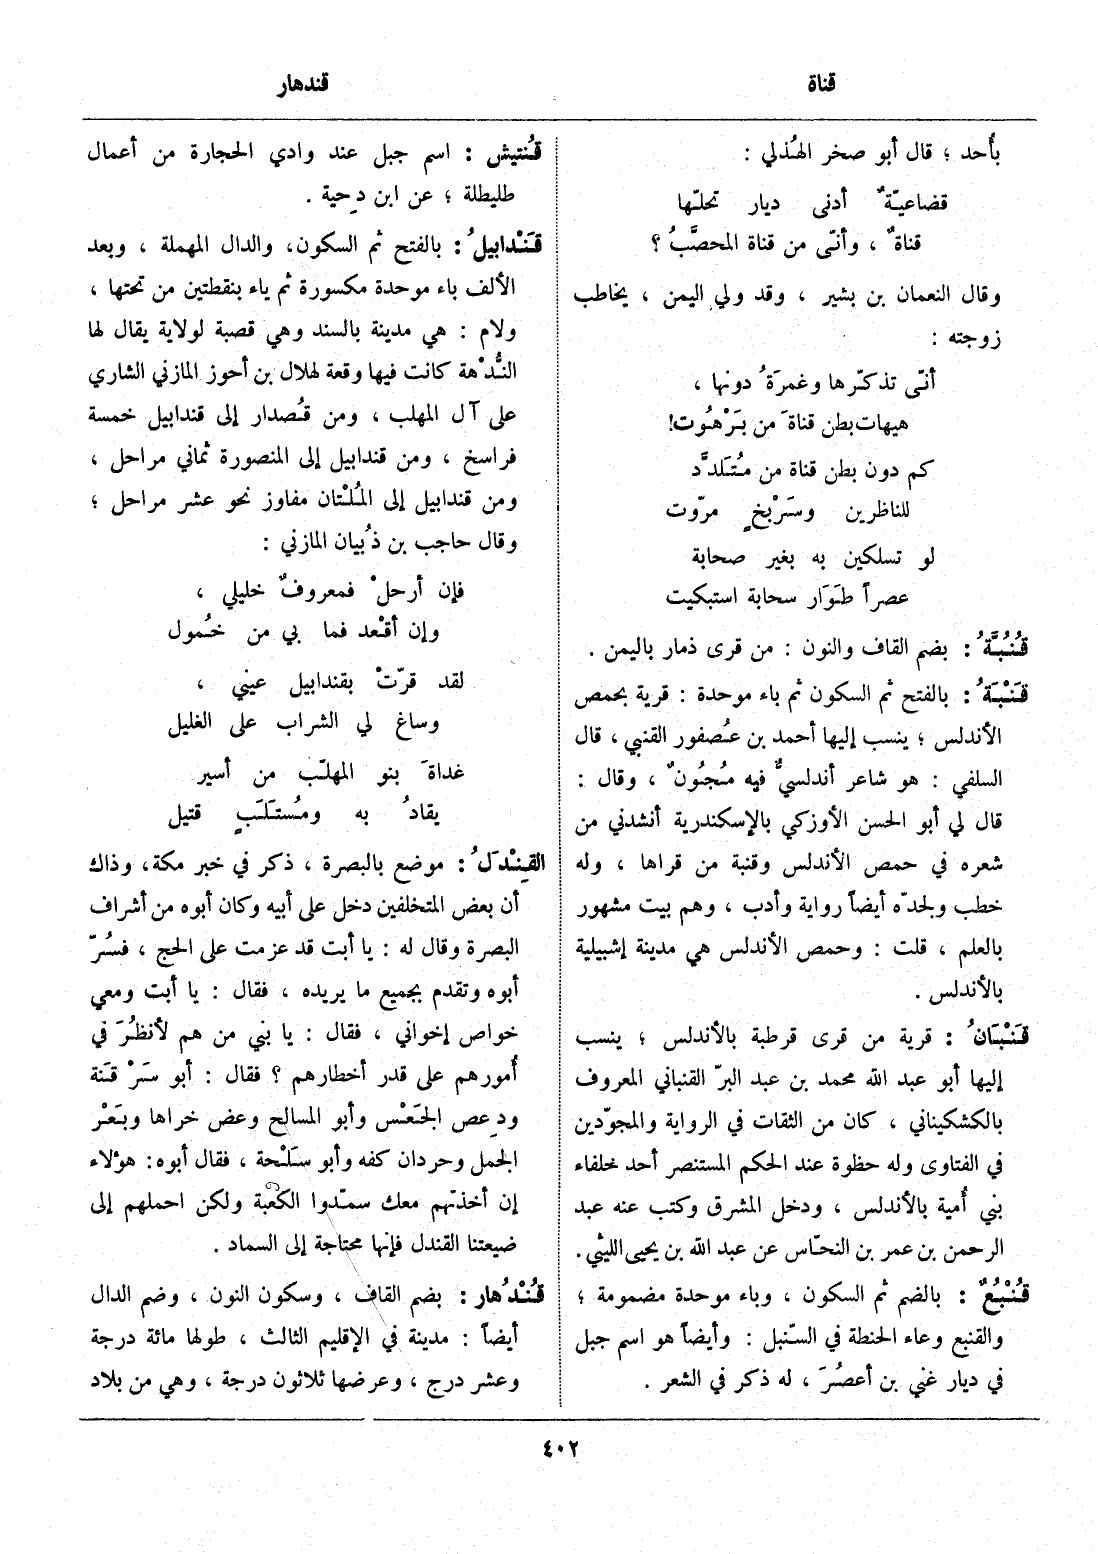 قناة
قندهار
بأُحد ؛ قال أبو صخر الهُذلي :
قضاعيّةٌ أدنى ديار تحلّها
قناةٌ ، وأنّى من قناة المحصَّبُ ؟
وقال النعمان بن بشير ، وقد ولي اليمن ، يخاطب
زوجته :
أنّى تذكّرها وغمرَةُ دونها ،
هيهات بطن قناةَ من بَرْهُوت!
كم دون بطن قناة من مُتَلدَّد
للناظرين وسَرْبخٍ مرّوت
لو تسلكين به بغير صحابة
عصراً طَوَار سحابة استبكيت
قُنُبَّةُ : بضم القاف والنون : من قرى ذمار باليمن .
قَنْبَةُ : بالفتح ثم السكون ثم باء موحدة : قرية بحمص
الأندلس ؛ ينسب إليها أحمد بن عُصفور القنبي ، قال
السلفي : هو شاعر أندلسيٌّ فيه مُجُونٌ ، وقال :
قال لي أبو الحسن الأوزكي بالإسكندرية أنشدني من
شعره في حمص الأندلس وقنبة من قراها ، وله
خطب ولجدّه أيضاً رواية وأدب ، وهم بيت مشهور
بالعلم ، قلت : وحمص الأندلس هي مدينة إشبيلية
بالأندلس .
قَنْبَانُ : قرية من قرى قرطبة بالأندلس ؛ ينسب
إليها أبو عبد الله محمد بن عبد البرّ القنباني المعروف
بالكشكيناني ، كان من الثقات في الرواية والمجوّدين
في الفتاوى وله حظوة عند الحكم المستنصر أحد خلفاء
بني أُمية بالأندلس ، ودخل المشرق وكتب عنه عبد
الرحمن بن عمر بن النحّاس عن عبد الله بن يحيى الليثي .
قُنْبُعٌ : بالضم ثم السكون ، وباء موحدة مضمومة ؛
والقنبع وعاء الحنطة في السّنبل : وأيضاً هو اسم جبل
في ديار غني بن أعصُرَ ، له ذكر في الشعر .
قُنتيش : اسم جبل عند وادي الحجارة من أعمال
طليطلة ؛ عن ابن دِحية .
قَنْدابيلُ : بالفتح ثم السكون، والدال المهملة ، وبعد
الألف باء موحدة مكسورة ثم ياء بنقطتين من تحتها ،
ولام : هي مدينة بالسند وهي قصبة لولاية يقال لها
النُّدْهة كانت فيها وقعة لهلال بن أحوز المازني الشاري
على آل المهلب ، ومن قُصدار إلى قندابيل خمسة
فراسخ ، ومن قندابيل إلى المنصورة ثماني مراحل ،
ومن قندابيل إلى المُلتان مفاوز نحو عشر مراحل ؛
وقال حاجب بن ذُبيان المازني :
فإن أرحلْ فمعروفٌ خليلي ،
وإن أقعد فما بي من خُمول
لقد قرّتْ بقندابيل عيني ،
وساغ لي الشراب على الغليل
غداةَ بنو المهلّب من أسير
يقادُ به ومُستَلَبٍ قتيل
القِندَلُ : موضع بالبصرة ، ذكر في خبر مكة، وذاك
أن بعض المتخلفين دخل على أبيه وكان أبوه من أشراف
البصرة وقال له : يا أبت قد عزمت على الحج ، فسُرّ
أبوه وتقدم بجميع ما يريده ، فقال : يا أبت ومعي
خواص إخواني ، فقال : يا بني من هم لأنظُرَ في
أُمورهم على قدر أخطارهم ؟ فقال : أبو سَرْ قَنة
ودِعص الجَعْس وأبو المسالح وعض خراها وبَعْر
الجمل وحردان كفه وأبو سَلْحة ، فقال أبوه: هؤلاء
إن أخذتهم معك سمّدوا الكعبة ولكن احملهم إلى
ضيعتنا القندل فإنها محتاجة إلى السماد .
قُنْدُهار : بضم القاف ، وسكون النون ، وضم الدال
أيضاً : مدينة في الإقليم الثالث ، طولها مائة درجة
وعشر درج ، وعرضها ثلاثون درجة ، وهي من بلاد
٤٠٢